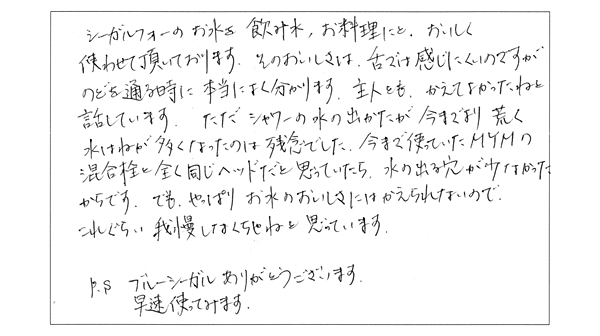 シーガルフォーのお水を飲み水、お料理にと、おいしく
使わせて頂いております。そのおいしさは、舌では感じにくいのですが
のどを通る時に本当によく分かります。主人とも、かえてよかったねと
話しています。ただシャワーの水の出かたが今までより荒く
水はねが多くなったのは残念でした。今まで使っていたMYMの
混合栓と全く同じヘッドだと思っていたら、水の出る穴が少なかった
からです。でも、やっぱりお水のおいしさにはかえられないので、
これぐらい我慢しなくちゃねと思っています。
P.S ブルーシーガルありがとうございます。
早速使ってみます。